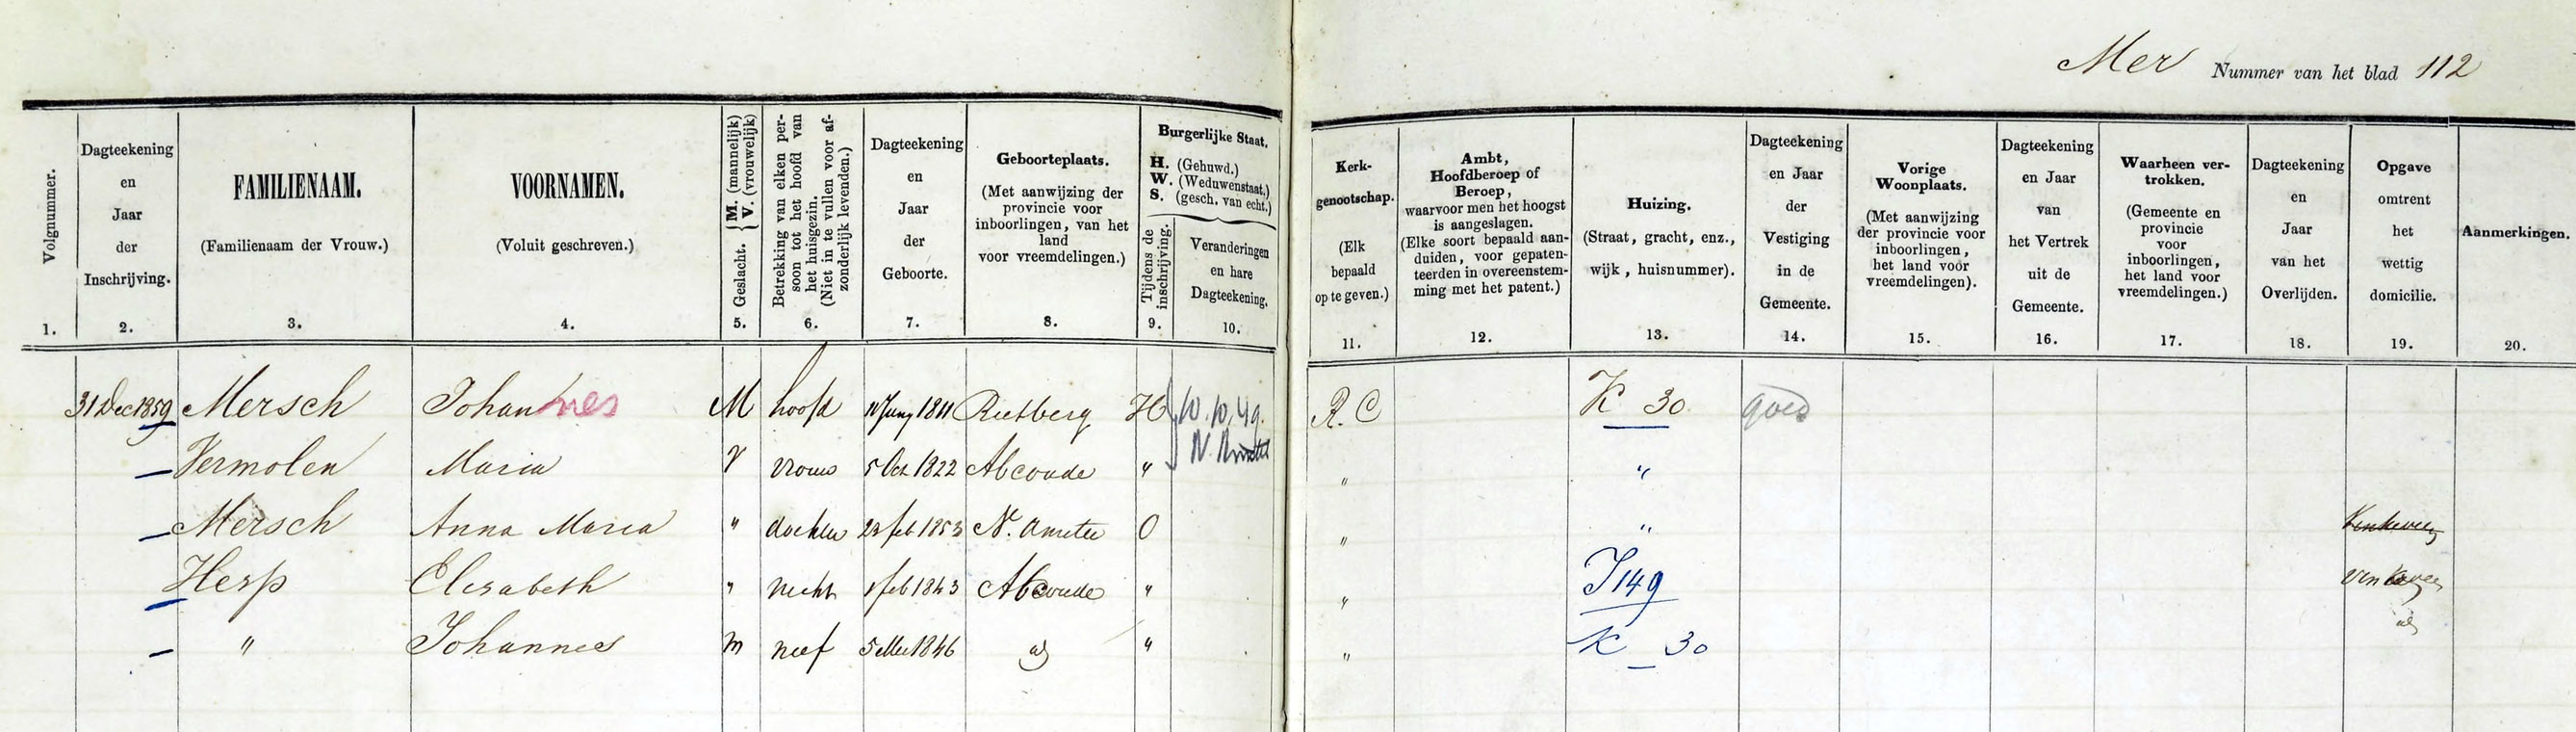 Mer Nummer van het blad 112
Volgnummer.
1.
Dagteekening
en
Jaar
der
Inschrijving.
2.
FAMILIENAAM.
(Familienaam der Vrouw.)
3.
VOORNAMEN.
(Voluit geschreven.)
4.
Geslacht. { M. (mannelijk) V. (vrouwelijk)
5.
Betrekking van elken per-
soon tot het hoofd van
het huisgezin.
(Niet in te vullen voor af-
zonderlijk levenden.)
6.
Dagteekening
en
Jaar
der
Geboorte.
7.
Geboorteplaats.
(Met aanwijzing der
provincie voor
inboorlingen, van het
land
voor vreemdelingen.)
8.
Burgerlijke Staat.
H. (Gehuwd.)
W. (Weduwenstaat.)
S. (gesch. van echt.)
Tijdens de
inschrijving.
9.
Veranderingen
en hare
Dagteekening.
10.
Kerk-
genootschap.
(Elk
bepaald
op te geven.)
11.
Ambt,
Hoofdberoep of
Beroep,
waarvoor men het hoogst
is aangeslagen.
(Elke soort bepaald aan-
duiden, voor gepaten-
teerden in overeenstem-
ming met het patent.)
12.
Huizing.
(Straat, gracht, enz.,
wijk, huisnummer).
13.
Dagteekening
en Jaar
der
Vestiging
in de
Gemeente.
14.
Vorige
Woonplaats.
(Met aanwijzing
der provincie voor
inboorlingen,
het land voor
vreemdelingen).
15.
Dagteekening
en Jaar
van
het Vertrek
uit de
Gemeente.
16.
Waarheen ver-
trokken.
(Gemeente en
provincie
voor
inboorlingen,
het land voor
vreemdelingen.)
17.
Dagteekening
en
Jaar
van het
Overlijden.
18.
Opgave
omtrent
het
wettig
domicilie.
19.
Aanmerkingen.
20.
31 Dec 1859 Mersch Johannes M hoofd 1811 Rietberg H 10.10.49. N. R.C K 30 goed
Vermolen Maria V vrouw 5 Oct 1822 Abcoude " " "
Mersch Anna Maria " dochter feb 1853 N. Amstel O " " Vinkeveen
Hesp Elisabeth " nicht 1 feb 1843 Abcoude " " J 149 Vinkeveen
" Johannes m neef 5 1846 " " K 30